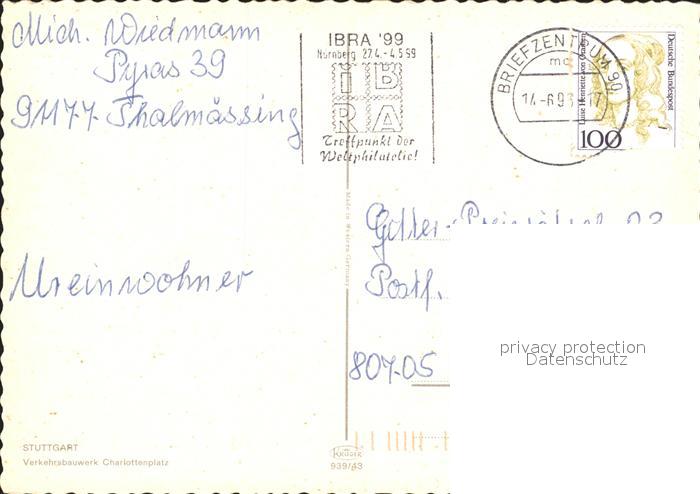 Mich. Wiedmann
Pyras 39
91177 Thalmässing
IBRA '99
Nürnberg 27.4.-4.5.99
IB
RA
Treffpunkt der
Weltphilatelie!
BRIEFZENTRUM 90
mc
14.-6.9
17
Deutsche Bundespost
Luise Henriette von Oranien
100
Postf.
807-05
Ureinwohner
Made in Western Germany
privacy protection
Datenschutz
STUTTGART
Verkehrsbauwerk Charlottenplatz
KRÜGER
939/43